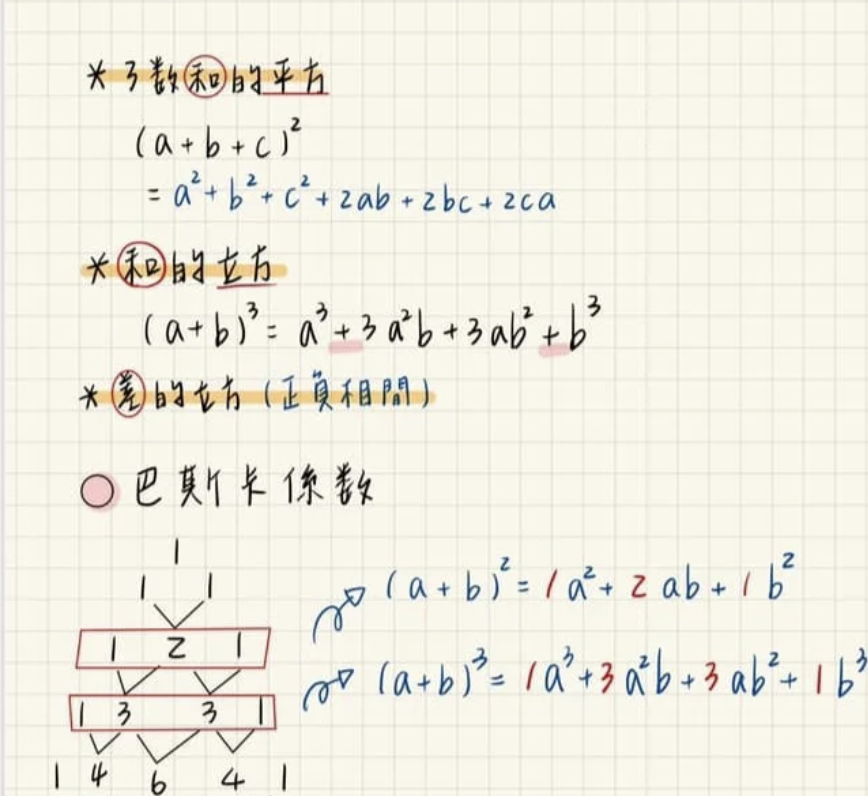 * 3数和的平方
(a+b+c)²
= a²+b²+c²+2ab+2bc+2ca
* 和的立方
(a+b)³ = a³+3a²b+3ab²+b³
* 差的立方(正負相間)
巴斯卡係数
1
1 1
1 2 1
(a+b)² = 1a²+2ab+1b²
1 3 3 1
(a+b)³ = 1a³+3a²b+3ab²+1b³
1 4 6 4 1